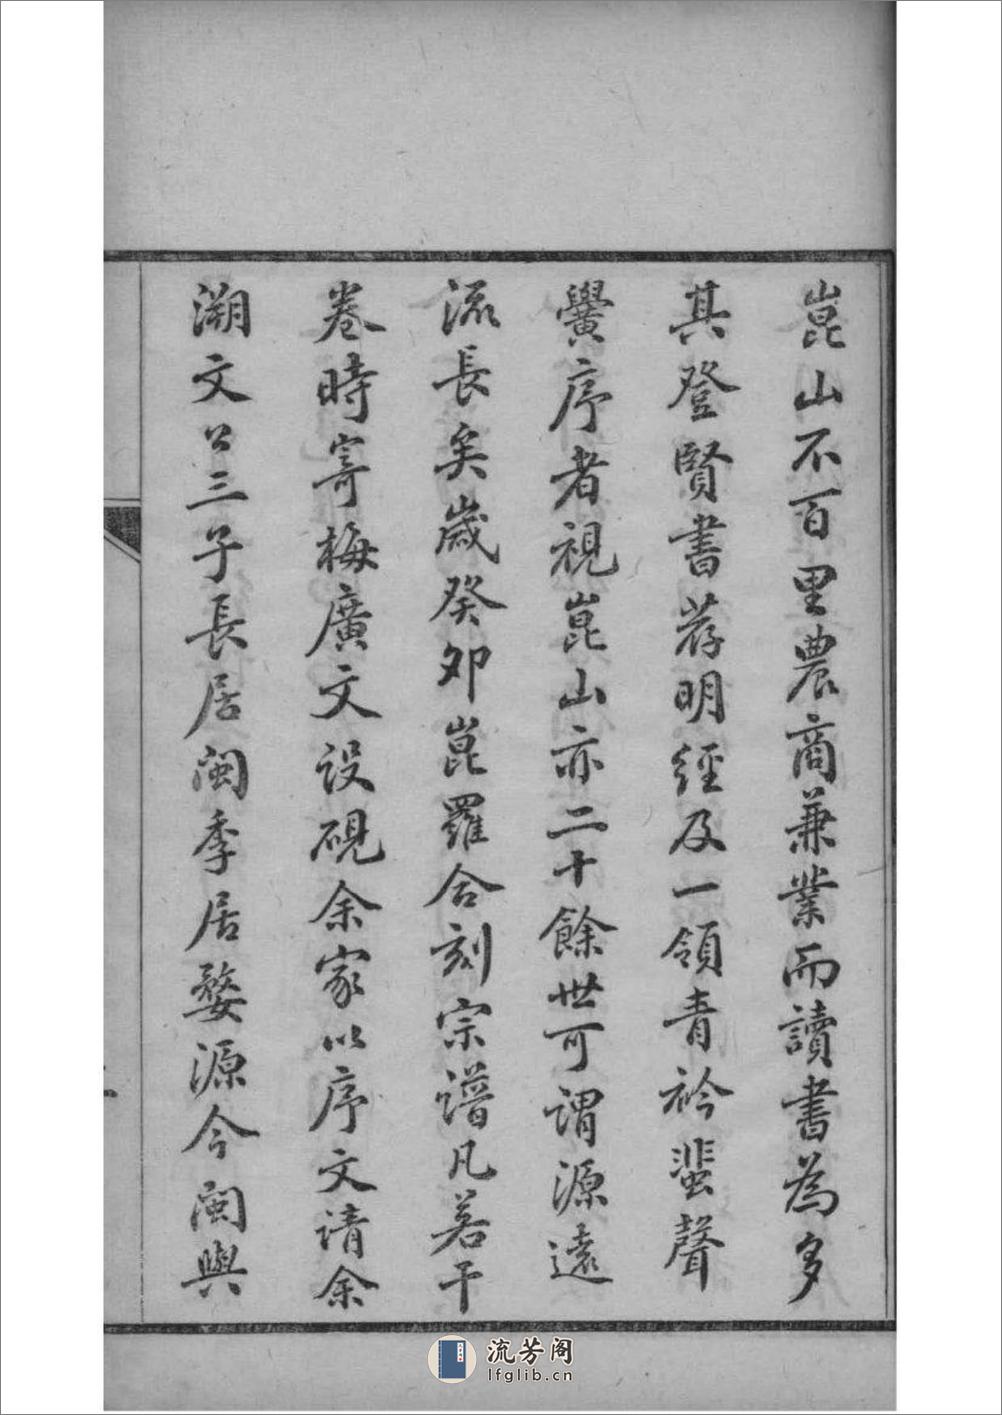 崑山不百里農商兼業而讀書為多
其登賢書荐明經及一領青衿蜚聲
黌序者視崑山亦二十餘世可謂源遠
流長矣歲癸卯崑羅合刻宗譜凡若干
卷時寄梅廣文設硯余家以序文请余
溯文公三子長居閩季居婺源今閩與
流芳阁
lfglib.cn